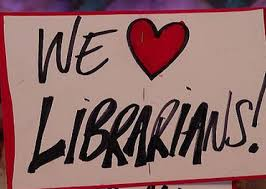 WE ❤️
LIBRARIANS!